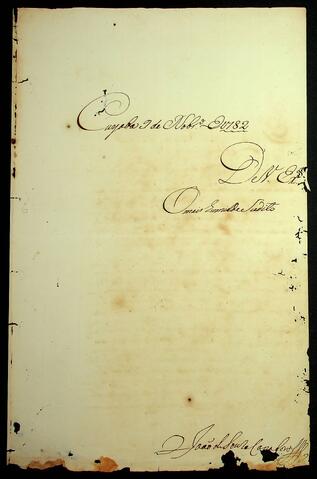 Cuyaba 9 de Nobr.o de 1782
De V. Ex.a
O mais humilde Subdito
João de Souza